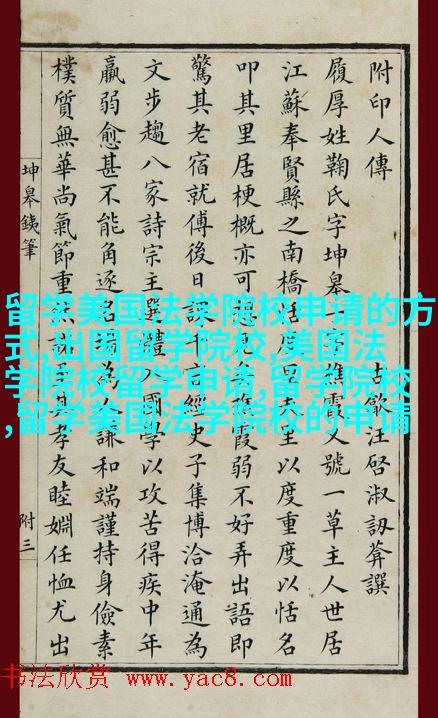 附印人傳 古歙汪啓淑訒葊譔
履厚姓鞠氏字坤皋一字樵霞又號一草主人世居
江蘇奉賢縣之南橋恬度里夫里以度重度以恬名
叩其里居梗概亦可想見樵霞弱不好弄出語即
驚其老宿就傅後日課千言經史子集博洽淹通為
文步趨八家詩宗主選體入國學以攻苦得疾中年
羸弱愈甚不能角逐名場為人謙和端謹持身儉素
樸質無華尚氣節重然諾至其孝友睦婣任恤尤出
坤皋銕筆
附三
留学美国法学院校申请的方
式,出国留学院校,美国法
学院校留学申请,留学院校
,留学美国法学院校的申请
书法欣赏 www.yac8.com